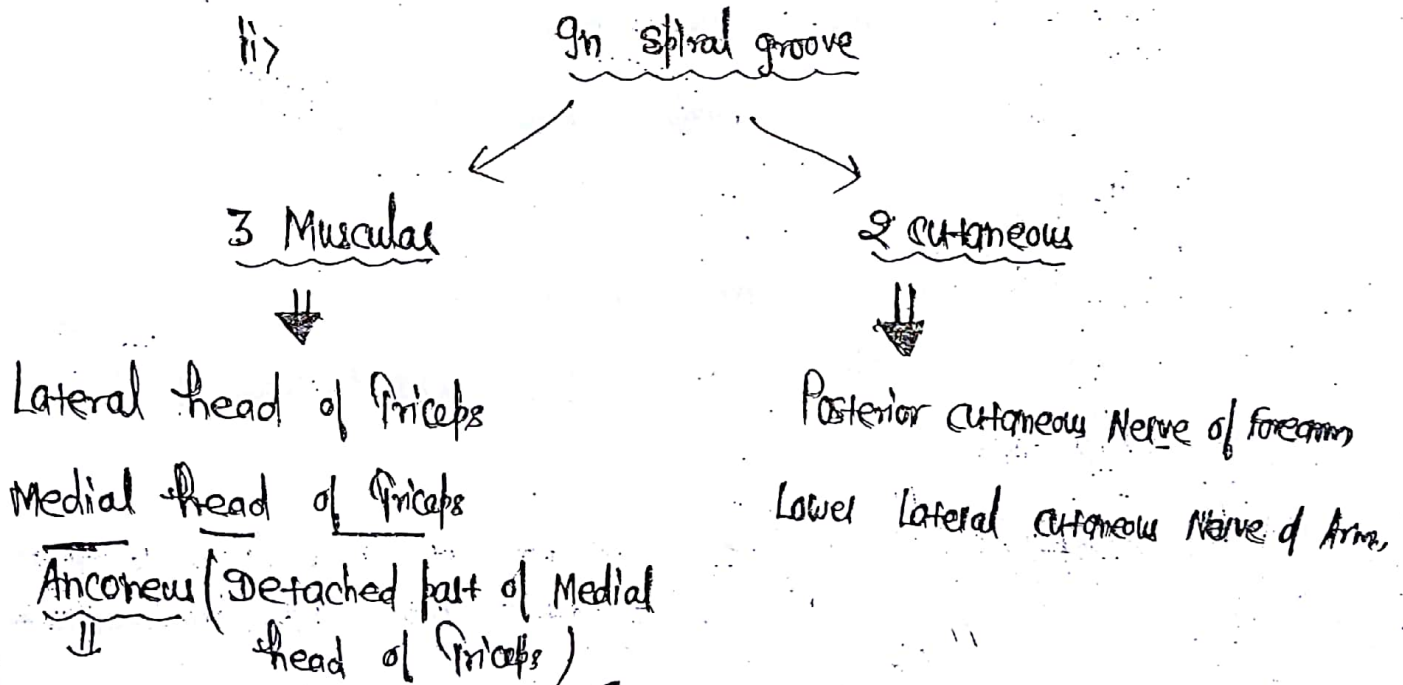 ii>
In spiral groove
3 Muscular
2 cutaneous
Lateral head of Triceps
Medial head of Triceps
Anconeus (Detached part of Medial
head of Triceps)
Posterior cutaneous Nerve of forearm
Lower Lateral cutaneous Nerve of Arm,